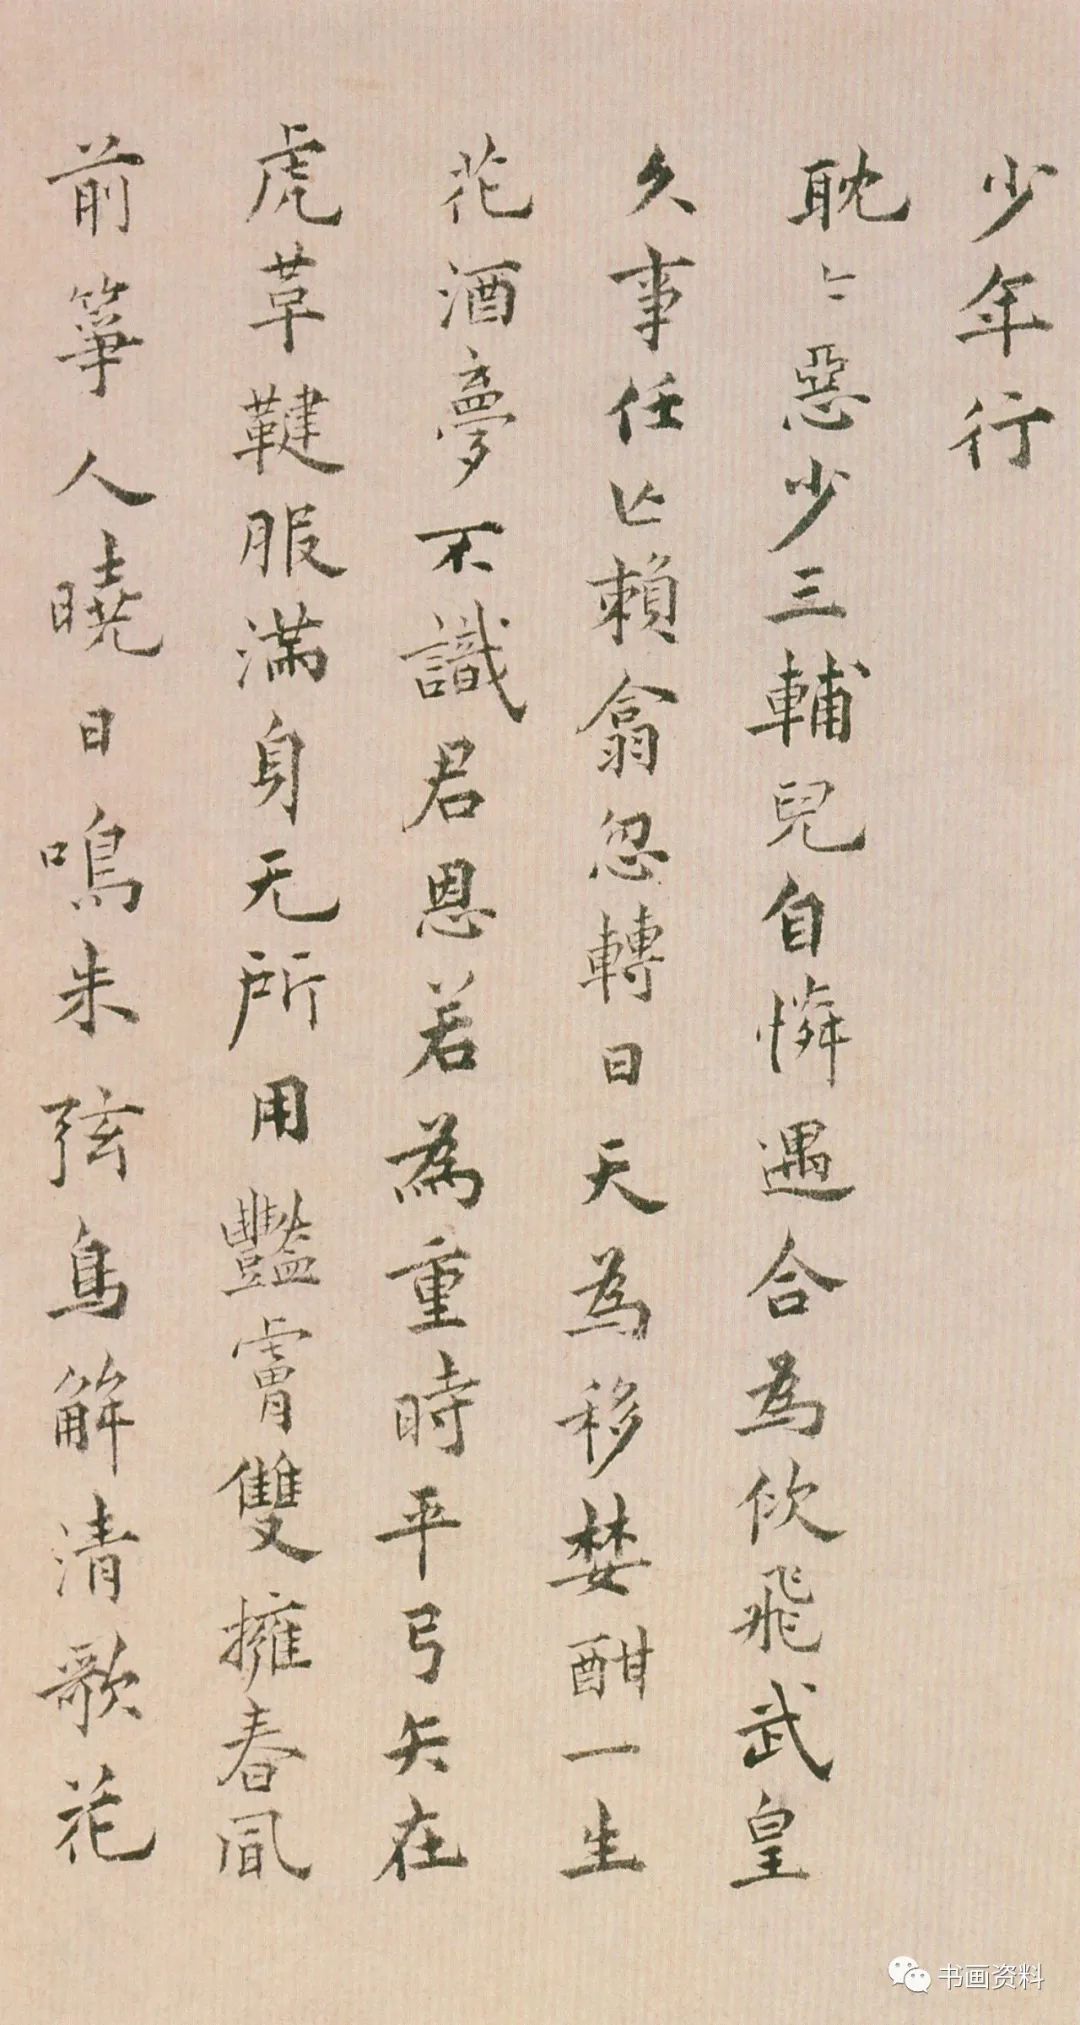 少年行
耽〻惡少三輔兒自憐遇合為佽飛武皇
久事任亡賴翕忽轉日天為移婪酣一生
花酒夢不識君恩若為重時平弓矢在
虎革鞬服滿身无所用豔膚雙擁春風
前箏人曉日鳴朱弦鳥解清歌花
书画资料